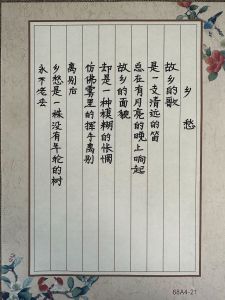 乡愁
故乡的歌
是一支清远的笛
总在有月亮的晚上响起
故乡的面貌
却是一种模糊的怅惘
仿佛雾里的挥手离别
离别后
乡愁是一棵没有年轮的树
永不老去
68A4-21